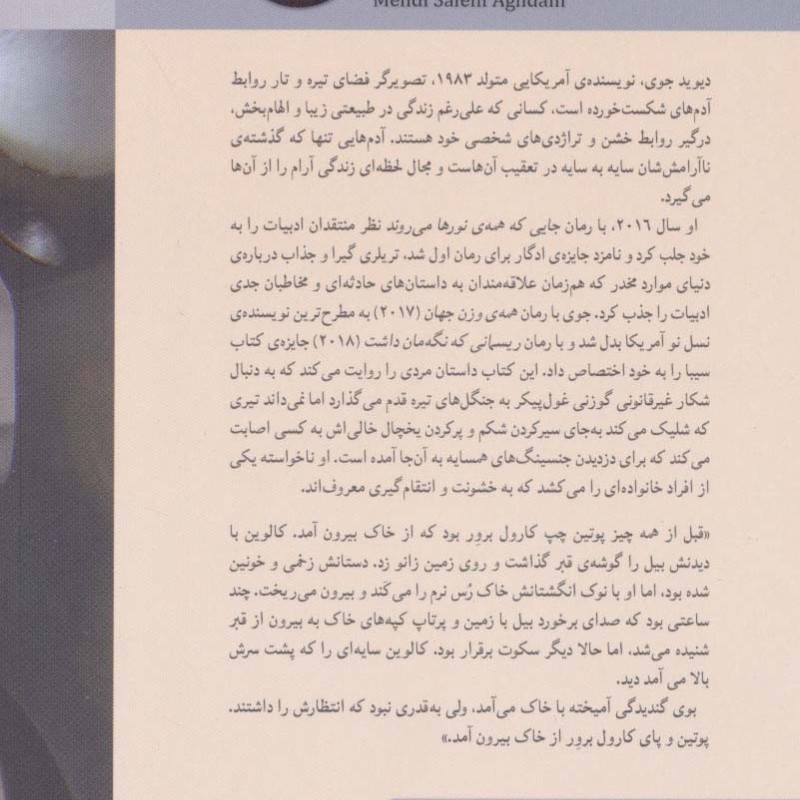 Mehdi Salehi Aghdam
دیوید جوی، نویسنده‌ی آمریکایی متولد ۱۹۸۳، تصویرگر فضای تیره و تار روابط
آدم‌های شکست‌خورده است، کسانی که علی‌رغم زندگی در طبیعتی زیبا و الهام‌بخش،
درگیر روابط خشن و تراژدی‌های شخصی خود هستند. آدم‌هایی تنها که گذشته‌ی
ناآرامش‌شان سایه به سایه در تعقیب آن‌هاست و مجال لحظه‌ای زندگی آرام را از آن‌ها
می‌گیرد.
او سال ۲۰۱۶، با رمان جایی که همه‌ی نورها می‌روند نظر منتقدان ادبیات را به
خود جلب کرد و نامزد جایزه‌ی ادگار برای رمان اول شد، تریلری گیرا و جذاب درباره‌ی
دنیای موارد مخدر که هم‌زمان علاقه‌مندان به داستان‌های حادثه‌ای و مخاطبان جدی
ادبیات را جذب کرد. جوی با رمان همه‌ی وزن جهان (۲۰۱۷) به مطرح‌ترین نویسنده‌ی
نسل نو آمریکا بدل شد و با رمان ریسمانی که نگه‌مان داشت (۲۰۱۸) جایزه‌ی کتاب
سیبا را به خود اختصاص داد. این کتاب داستان مردی را روایت می‌کند که به دنبال
شکار غیرقانونی گوزنی غول‌پیکر به جنگل‌های تیره قدم می‌گذارد اما نمی‌داند تیری
که شلیک می‌کند به‌جای سیرکردن شکم و پرکردن یخچال خالی‌اش به کسی اصابت
می‌کند که برای دزدیدن جنسینگ‌های همسایه به آن‌جا آمده است. او ناخواسته یکی
از افراد خانواده‌ای را می‌کشد که به خشونت و انتقام‌گیری معروف‌اند.
«قبل از همه چیز پوتین چپ کارول برور بود که از خاک بیرون آمد. کالوین با
دیدنش بیل را گوشه‌ی قبر گذاشت و روی زمین زانو زد. دستانش زخمی و خونین
شده بود، اما او با نوک انگشتانش خاک رُس نرم را می‌کَند و بیرون می‌ریخت. چند
ساعتی بود که صدای برخورد بیل با زمین و پرتاپ کپه‌های خاک به بیرون از قبر
شنیده می‌شد، اما حالا دیگر سکوت برقرار بود. کالوین سایه‌ای را که پشت سرش
بالا می آمد دید.
بوی گندیدگی آمیخته با خاک می‌آمد، ولی به‌قدری نبود که انتظارش را داشتند.
پوتین و پای کارول برور از خاک بیرون آمد.»